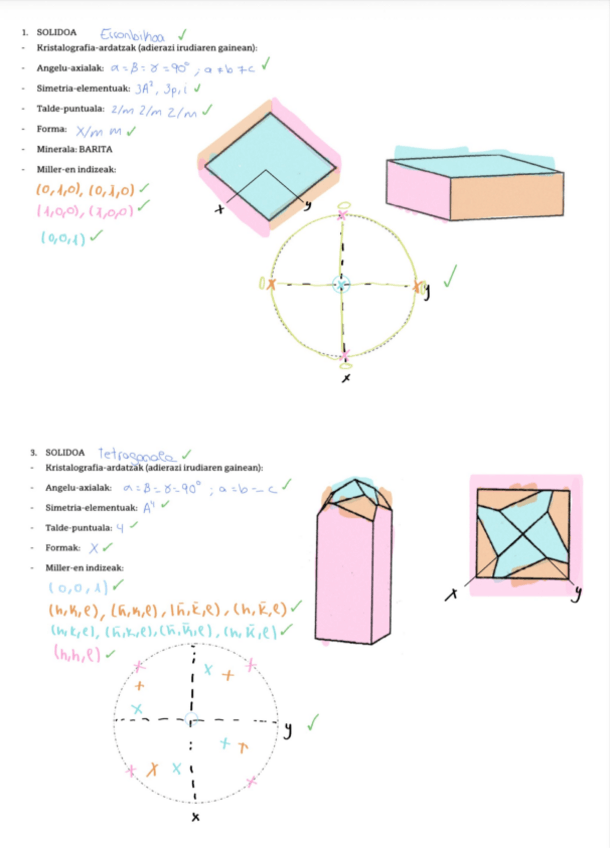 1. SOLIDOA Erronbikoa ✓
- Kristalografia-ardatzak (adierazi irudiaren gainean):
- Angelu-axialak: α=β=γ=90° ; a≠b≠c ✓
- Simetria-elementuak: 3A², 3p, i ✓
- Talde-puntuala: 2/m 2/m 2/m ✓
- Forma: X/m m ✓
- Minerala: BARITA
- Miller-en indizeak:
(0,1,0), (0,1̄,0) ✓
(1,0,0), (1̄,0,0) ✓
(0,0,1) ✓
x y
y ✓
x
3. SOLIDOA Tetragonala ✓
- Kristalografia-ardatzak (adierazi irudiaren gainean):
- Angelu-axialak: α=β=γ=90° ; a=b=c ✓
- Simetria-elementuak: A⁴ ✓
- Talde-puntuala: 4 ✓
- Formak: X ✓
- Miller-en indizeak:
(0,0,1) ✓
(h,h,l) ✓
x y
y ✓
x